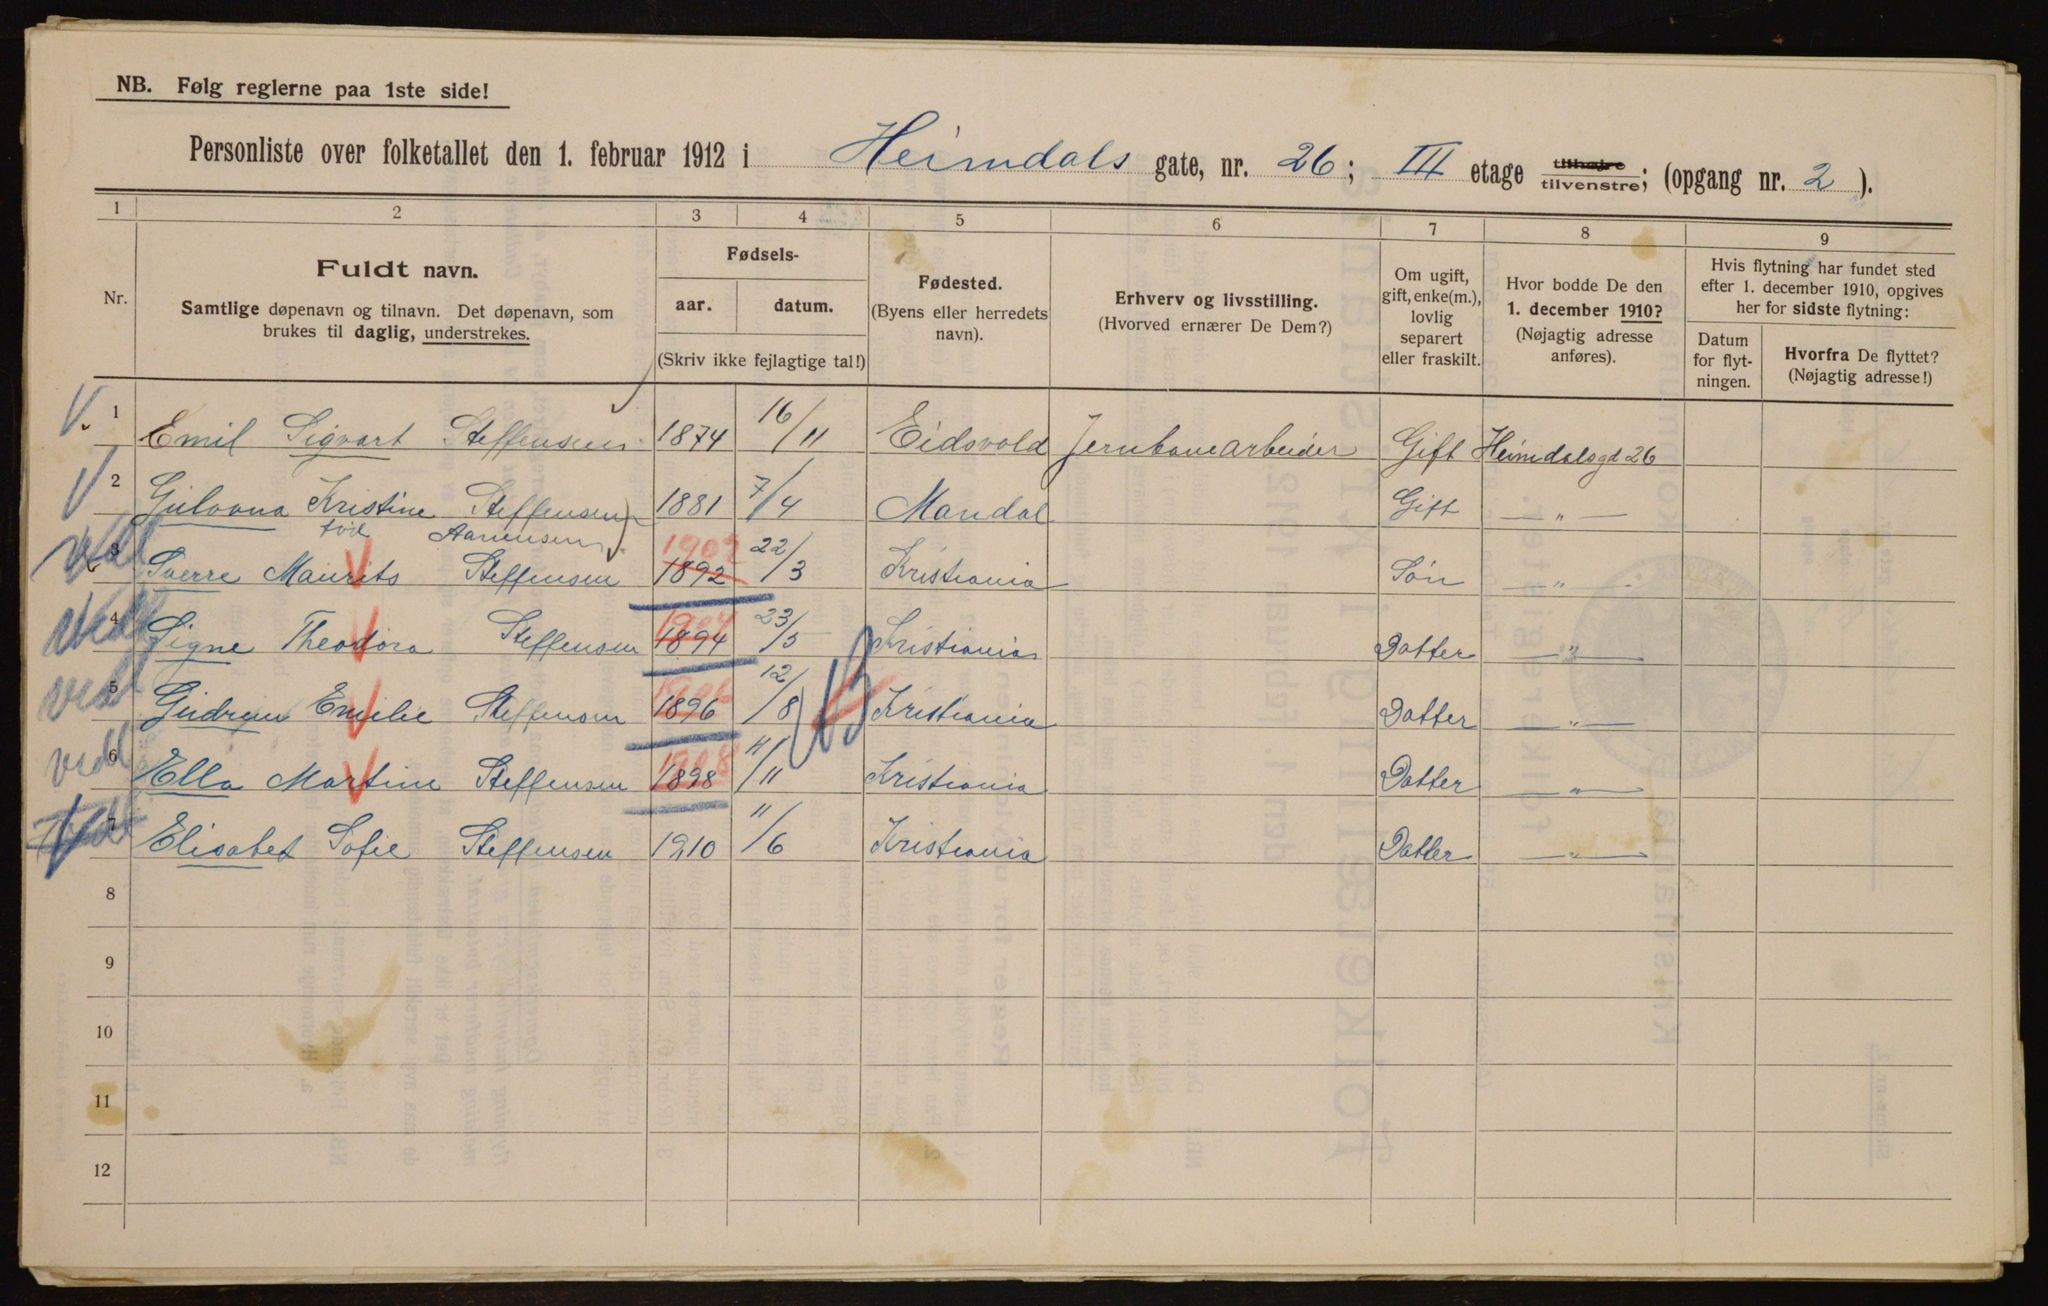 NB. Følg reglerne paa 1ste side!
Personliste over folketallet den 1. februar 1912 i Heimdals gate, nr. 26; III etage tilhøjre tilvenstre; (opgang nr. 2).
1 2 3 4 5 6 7 8 9
Nr.
Fuldt navn.
Samtlige døpenavn og tilnavn. Det døpenavn, som
brukes til daglig, understrekes.
Fødsels-
aar. datum.
(Skriv ikke fejlagtige tal!)
Fødested.
(Byens eller herredets
navn).
Erhverv og livsstilling.
(Hvorved ernærer De Dem?)
Om ugift,
gift, enke(m.),
lovlig
separert
eller fraskilt.
Hvor bodde De den
1. december 1910?
(Nøjagtig adresse
anføres).
Hvis flytning har fundet sted
efter 1. december 1910, opgives
her for sidste flytning:
Datum
for flyt-
ningen.
Hvorfra De flyttet?
(Nøjagtig adresse!)
V. 1 Emil Sigvart Steffensen 1874 16/11 Eidsvold Jernbanearbeider Gift Heimdalsgd 26
V 2 Kristine Steffensen 1881 7/4 Mandal Gift — „ —
fød
vedl 3 Sverre Maurits V Steffensen 1902 1892 22/3 Kristiania Søn — „ —
vedl 4 Signe Theodora V Steffensen 1904 1894 23/5 Kristiania Datter — „ —
vedl 5 Gudrun Emilie V Steffensen 1906 1896 12/8 Kristiania Datter — „ —
vedl 6 Ella Martine V Steffensen 1908 1898 11/11 Kristiania Datter — „ —
7 Elisabet Sofie Steffensen 1910 11/6 Kristiania Datter — „ —
8
9
10
11
12